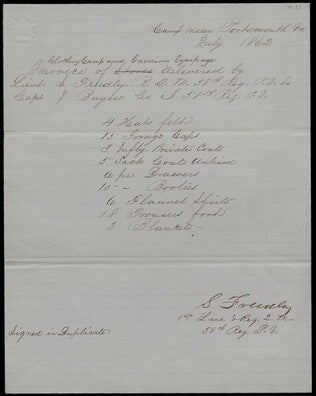 Camp near Portsmouth Va
July 1863
Clothing Camp and Garrison Equipage
Invoice of Stores delivered by
Lieut S. Freudley, R. Q. M. 58th Reg. P.V. to
Capt J Co I 58th Reg. P.V.
4 Hats felt
15 Forage Caps
3 Infty Privates Coats
5 Sack Coats Unlined
6 prs Drawers
15 - Booties
6 Flannel Shirts
18 Trousers foot
3 Blankets -
S Freudley
1st Lieut & Reg. Q. M
58th Reg. P.V.
Signed in Duplicate